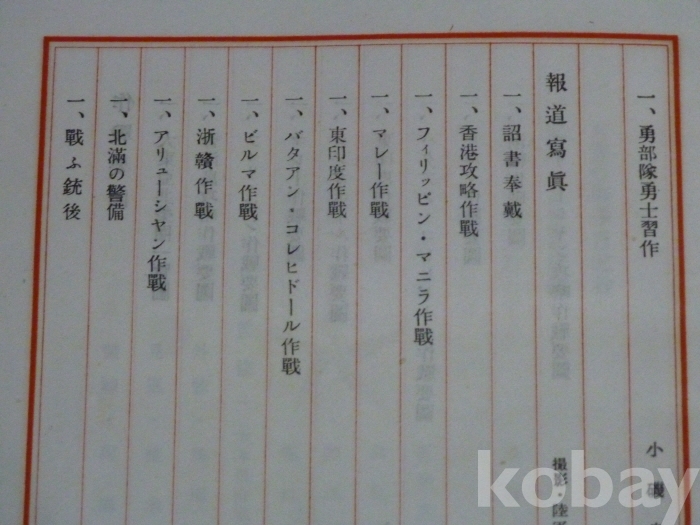 一、勇部隊勇士習作 小磯
報道寫眞 撮影・陸
一、詔書奉戴
一、香港攻略作戰
一、フィリッピン・マニラ作戰
一、マレー作戰
一、東印度作戰
一、バタアン・コレヒドール作戰
一、ビルマ作戰
一、浙贛作戰
一、アリューシヤン作戰
一、北滿の警備
一、戰ふ銃後
kobay